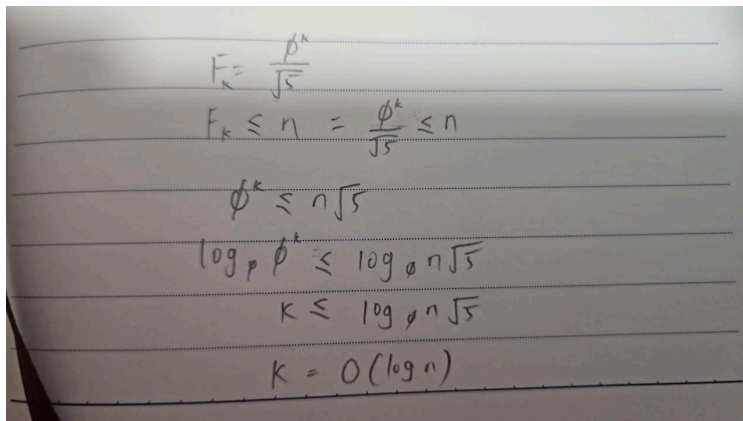 F_k = φ^k / √5
F_k ≤ n = φ^k / √5 ≤ n
φ^k ≤ n√5
log_φ φ^k ≤ log_φ n√5
K ≤ log_φ n√5
K = O(log n)